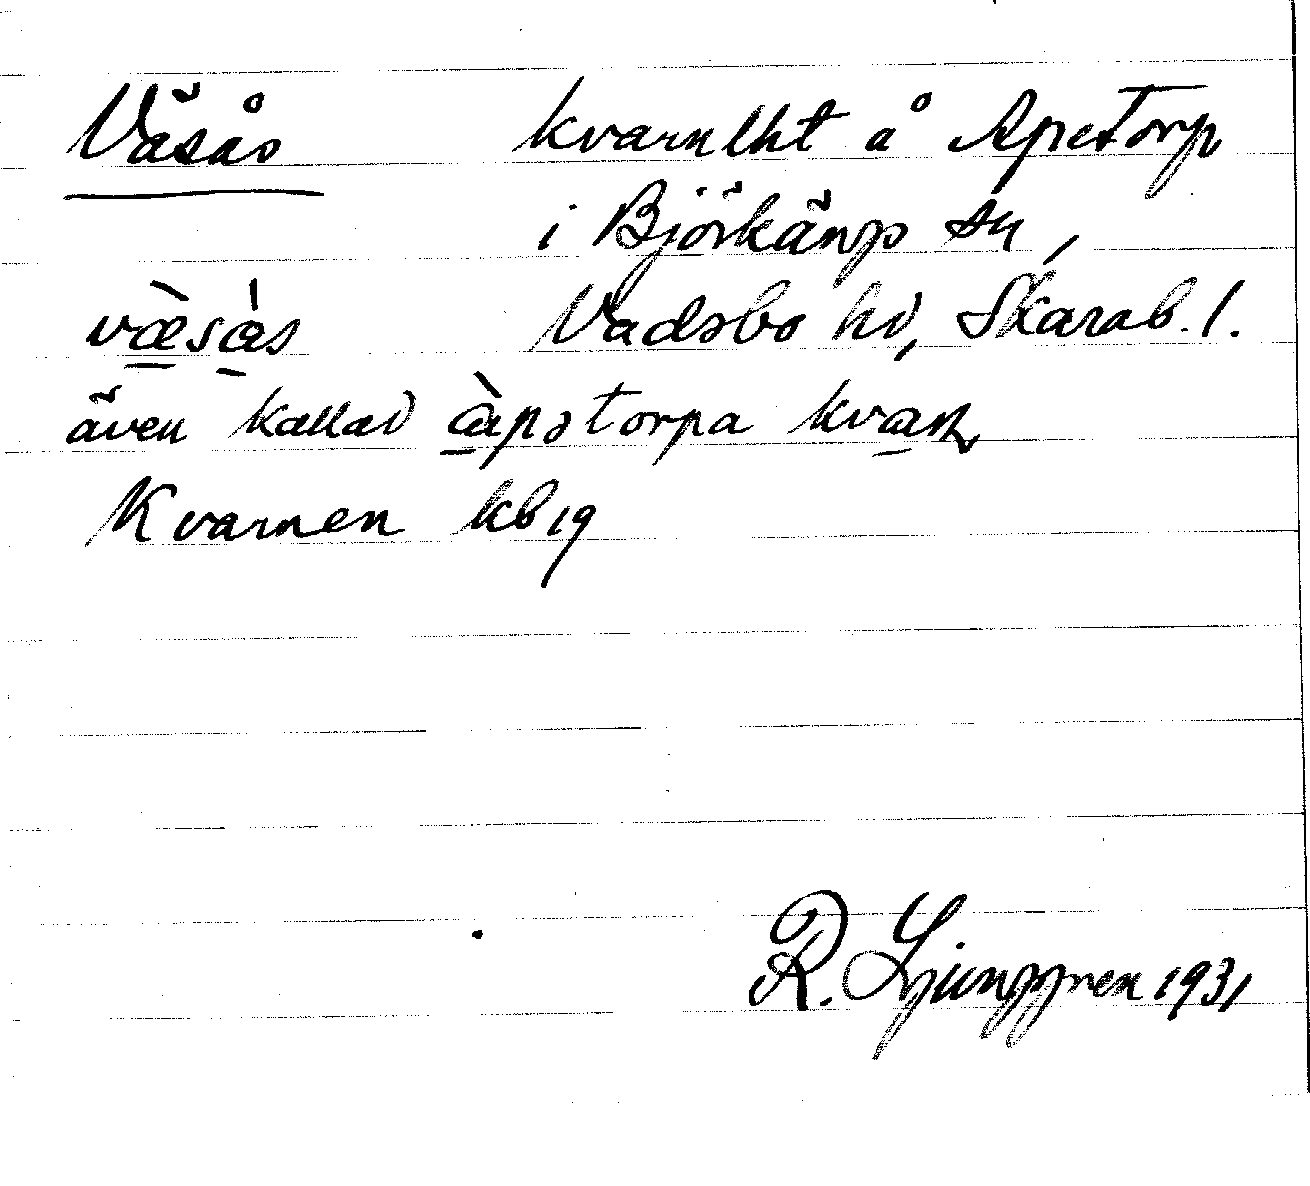 Väsås kvarnlht å Apetorp
i Björkängs sn,
væ̀sás Vadsbo hd, Skarab. l.
även kallad àpətorpa kvaṇ
Kvarnen kb 19
R. Ljunggren 1931